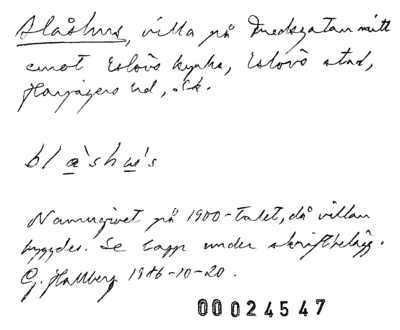 Blåshus, villa på Fredsgatan mitt
emot Eslövs kyrka, Eslövs stad,
Harjagers hd, sk.
bl a̲ˋsh u̲ˊs
Namngivet på 1900-talet, då villan
byggdes. Se lapp under skriftbelägg.
G. Hallberg 1986-10-20.
00024547